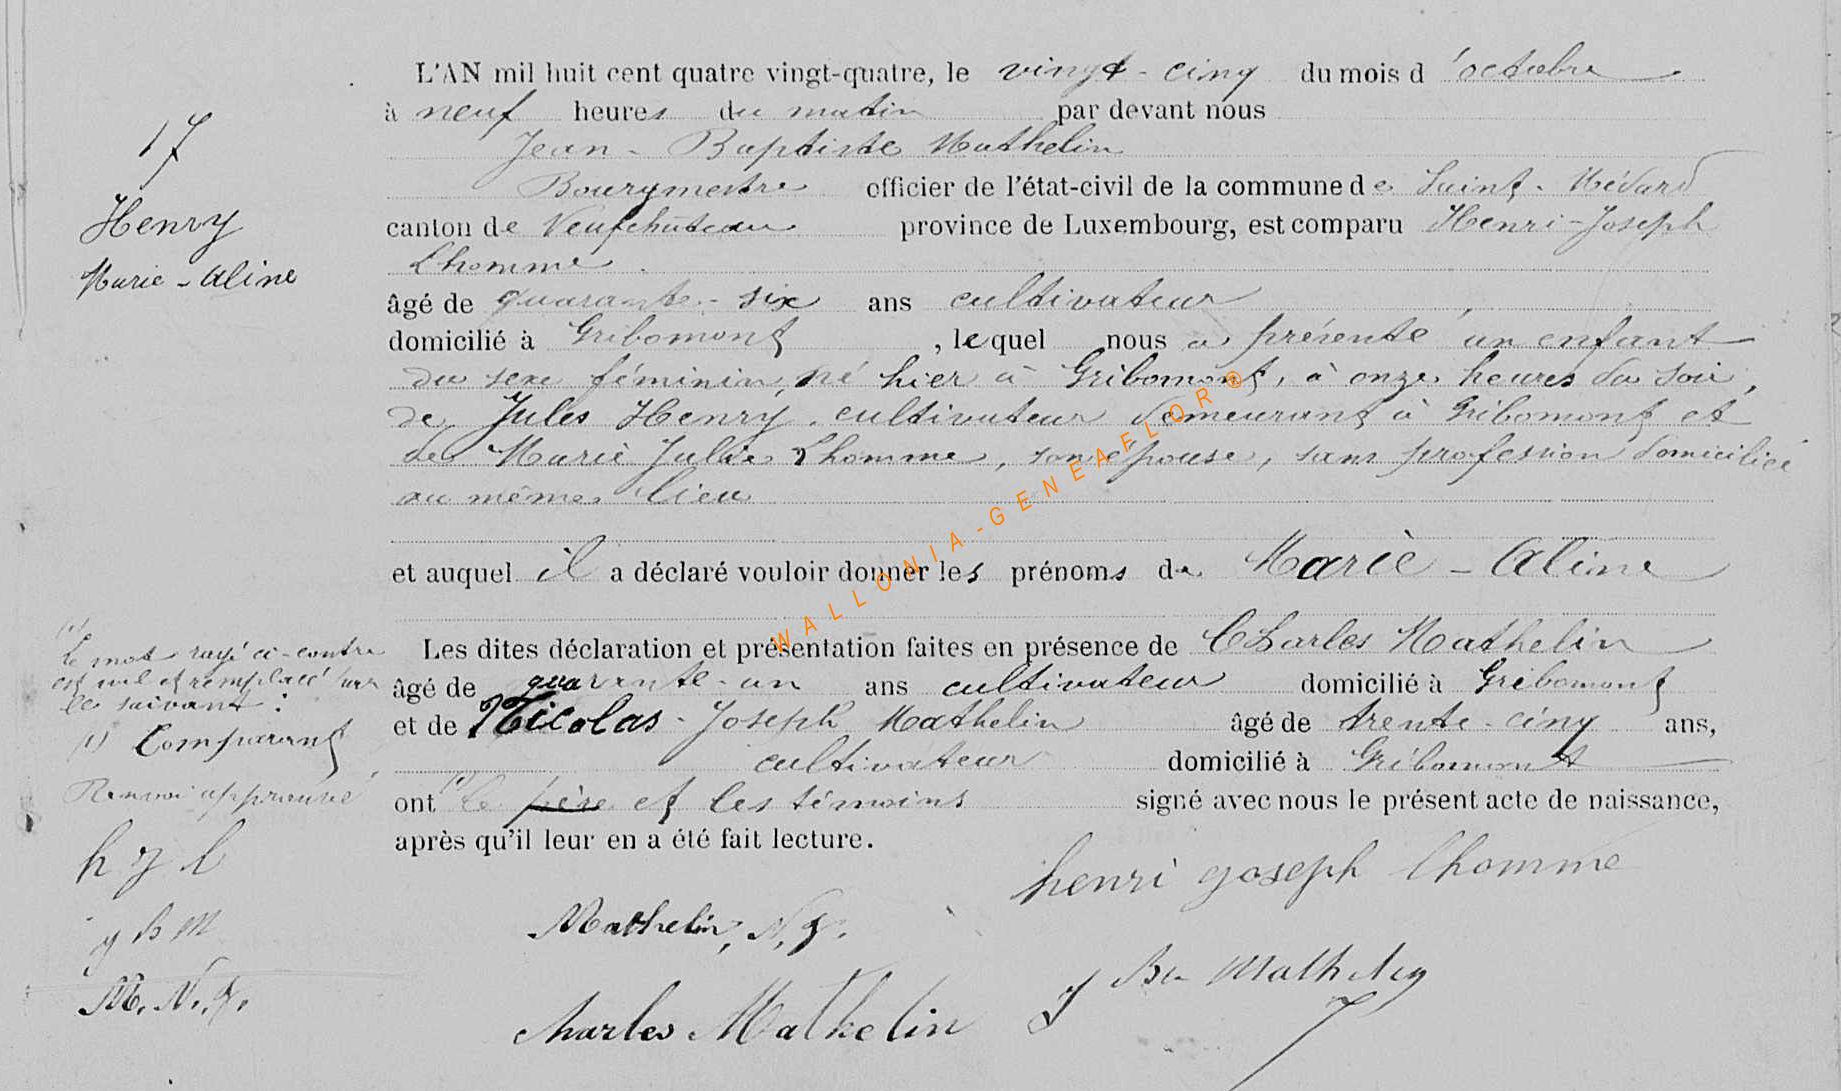 L'AN mil huit cent quatre vingt-quatre, le vingt-cinq du mois d'octobre
à neuf heures du matin par devant nous
Jean-Baptiste Mathelin
Bourgmestre officier de l'état-civil de la commune de Saint-Médard
canton de Neufchâteau province de Luxembourg, est comparu Henri-Joseph
Lhomme
âgé de quarante-six ans cultivateur,
domicilié à Gribomont, lequel nous a présenté un enfant
du sexe féminin, né hier à Gribomont, à onze heures du soir,
de Jules Henry, cultivateur demeurant à Gribomont et
de Marie Julie Lhomme, son épouse, sans profession domiciliée
au même lieu
et auquel il a déclaré vouloir donner les prénoms de Marie-Aline
Les dites déclaration et présentation faites en présence de Charles Mathelin
âgé de quarante-un ans cultivateur domicilié à Gribomont
et de Nicolas-Joseph Mathelin âgé de trente-cinq ans,
cultivateur domicilié à Gribomont
ont (1) le père et les témoins signé avec nous le présent acte de naissance,
après qu'il leur en a été fait lecture.
henri joseph lhomme
Mathelin, N. J.
J Bte Mathelin
Charles Mathelin
17
Henry
Marie-Aline
(1)
Le mot rayé ci-contre
est nul et remplacé par
le suivant :
(1) Comparant
Renvoi approuvé
h j l
j b m
M. N. J.
WALLONIA-GENEAFLOR®